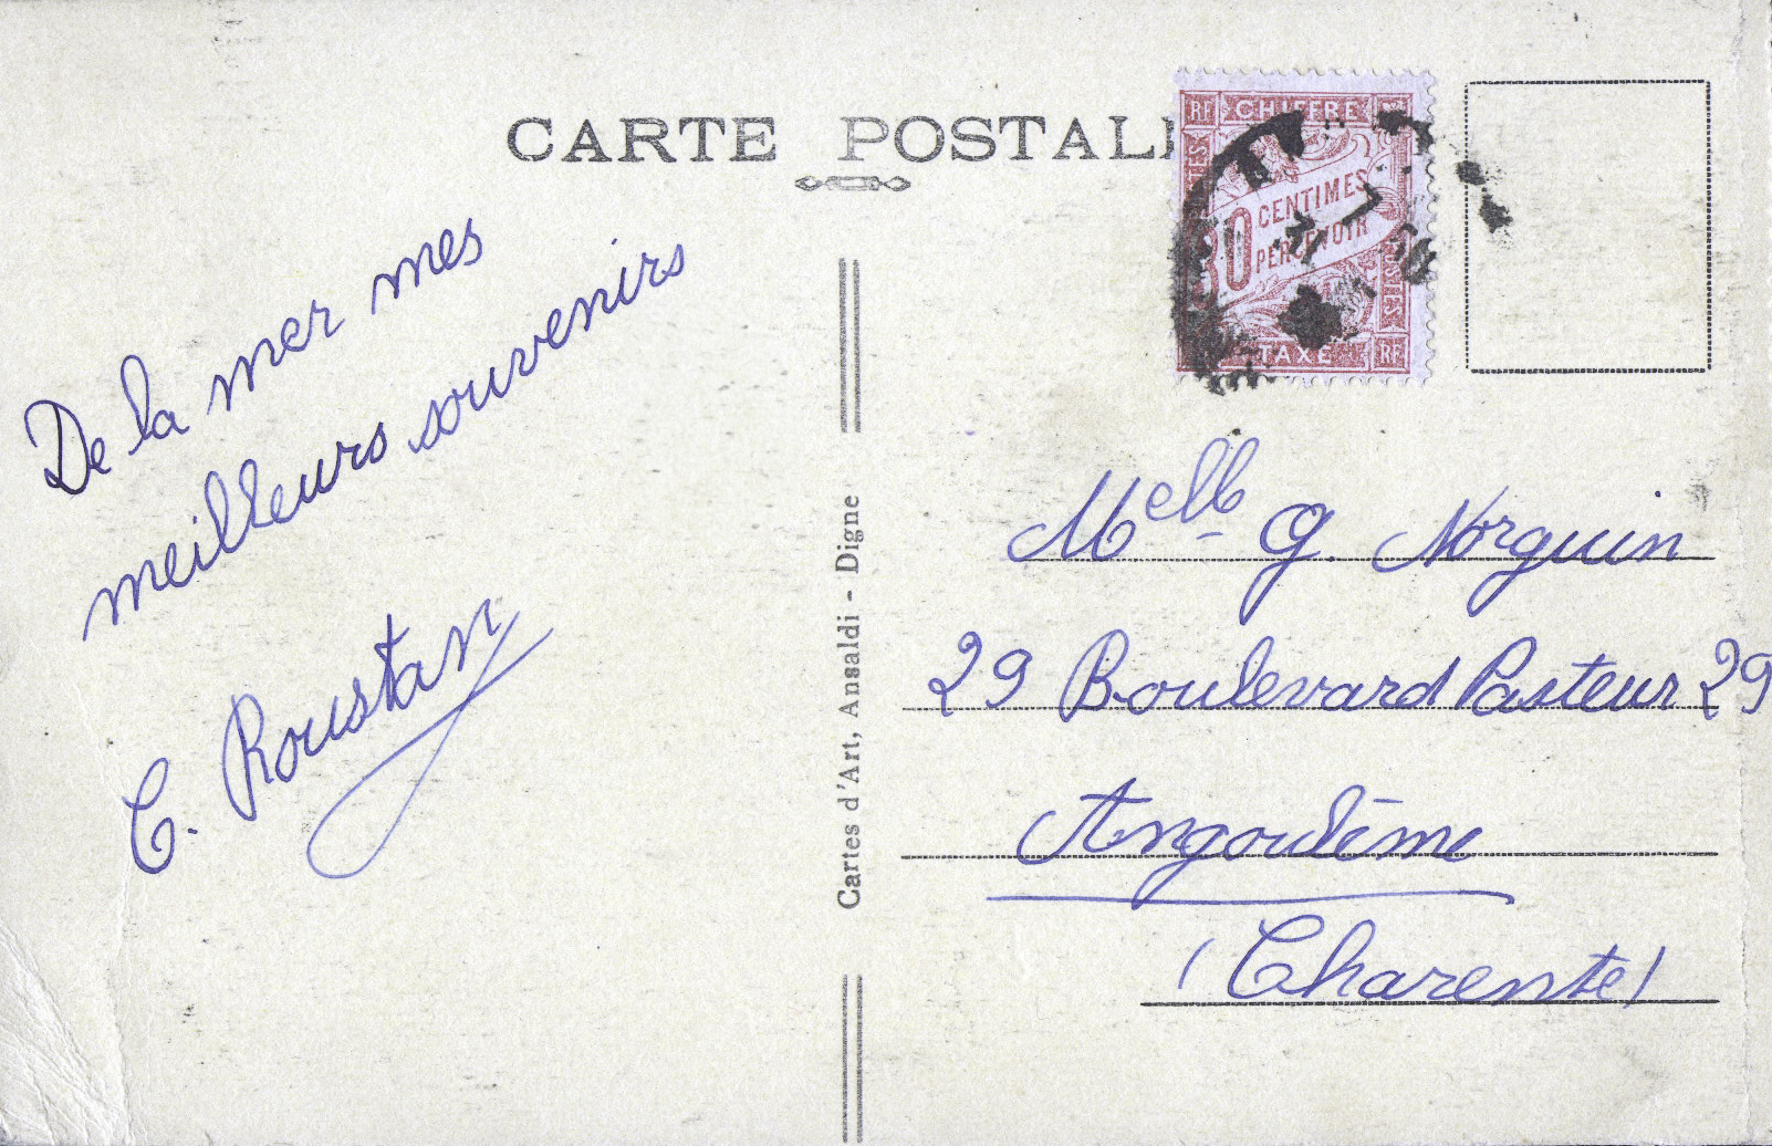 CARTE POSTALE
RF CHIFFRE
30 CENTIMES
PERCEVOIR
TAXE RF
De la mer mes
meilleurs souvenirs
C. Roustan
Cartes d'Art, Ansaldi - Digne
Melle G. Norguin
29 Boulevard Pasteur 29
Angoulême
(Charente)